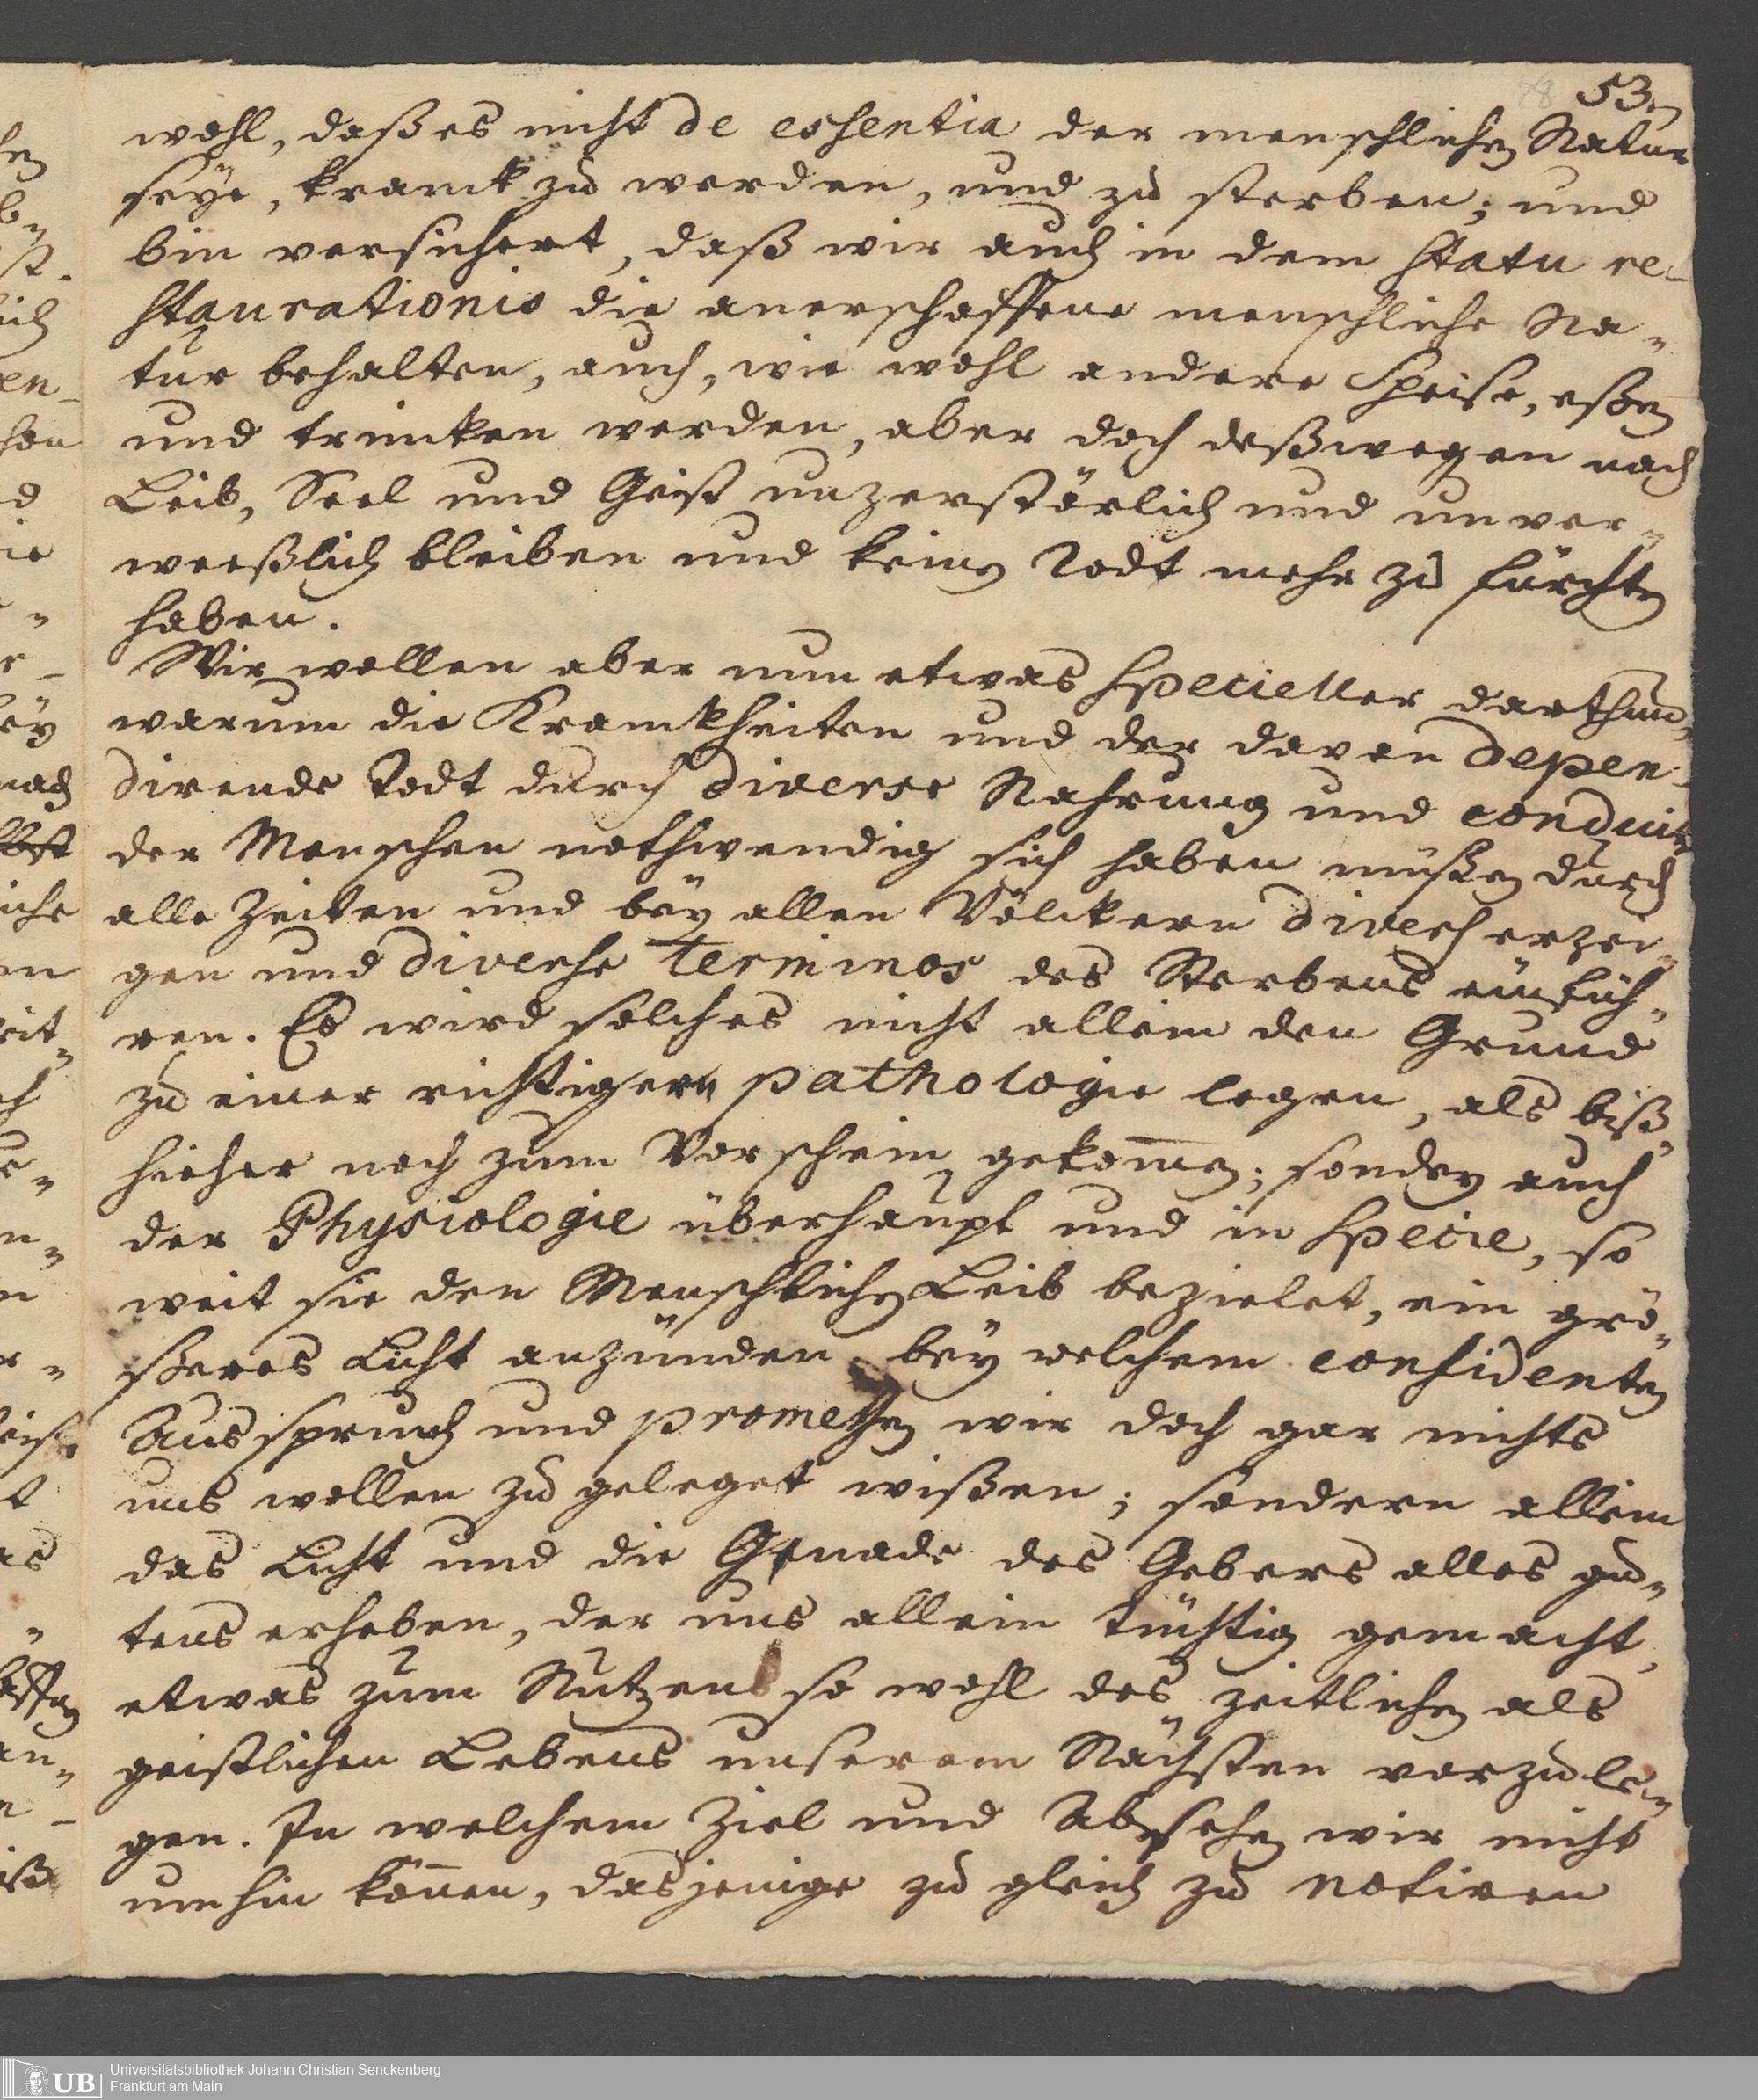 53.
wohl, daß es nicht de essentia der menschlichen Natur
seye, kranck zu werden, und zu sterben; und
bin versichert, daß wir auch in dem statu re-
staurationis die anerschaffene menschliche Na-
tur behalten, auch, wie wohl andere Speise, eßen
und trincken werden, aber doch deßwegen nach
Leib, Seel und Geist unzerstörlich und unver-
weeßlich bleiben und keinen Todt mehr zu fürchten
haben.
Wir wollen aber nun etwas specieller darthun,
warum die Kranckheiten und der davon depen-
dirende Todt durch diverse Nahrung und conduite
der Menschen nothwendig sich haben müßen durch
alle Zeiten und bey allen Völckern divers erzei-
gen und diverse terminos des Sterbens einfüh-
ren. Es wird solches nicht allein den Grund
zu einer richtigern pathologie legen, als biß-
hieher noch zum Vorschein gekommen; sondern auch
der Physiologie überhaupt und in specie, so
weit sie den Menschlichen Leib bezielet, ein grö-
ßeres Licht anzünden. bey welchem confidenten
Ausspruch und promessen wir doch gar nichts
uns wollen zu geleget wißen; sondern allein
das Licht und die Genade des Gebers alles gu-
tens erheben, der uns allein tüchtig gemacht,
etwas zum Nutzen so wohl des zeitlichen als
geistlichen Lebens unserem Nächsten vorzule-
gen. In welchem Ziel und Absehen wir nicht
umhin können, dasjenige zu gleich zu notiren
UB
Universitätsbibliothek Johann Christian Senckenberg
Frankfurt am Main